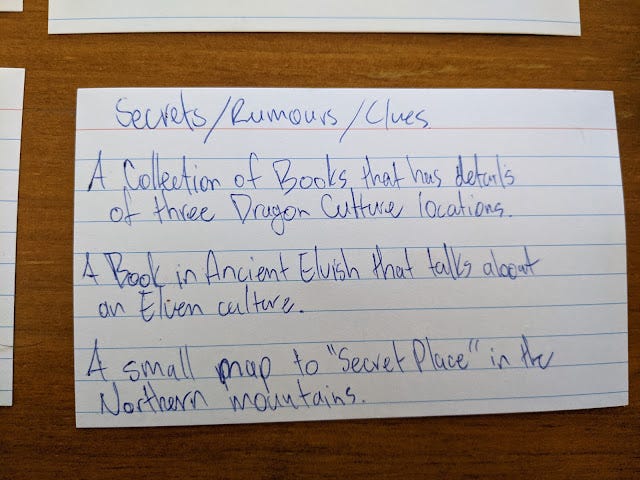 Secrets/Rumours/Clues
A Collection of Books that has details
of three Dragon Culture locations.
A Book in Ancient Elvish that talks about
an Elven culture.
A small map to "Secret Place" in the
Northern mountains.